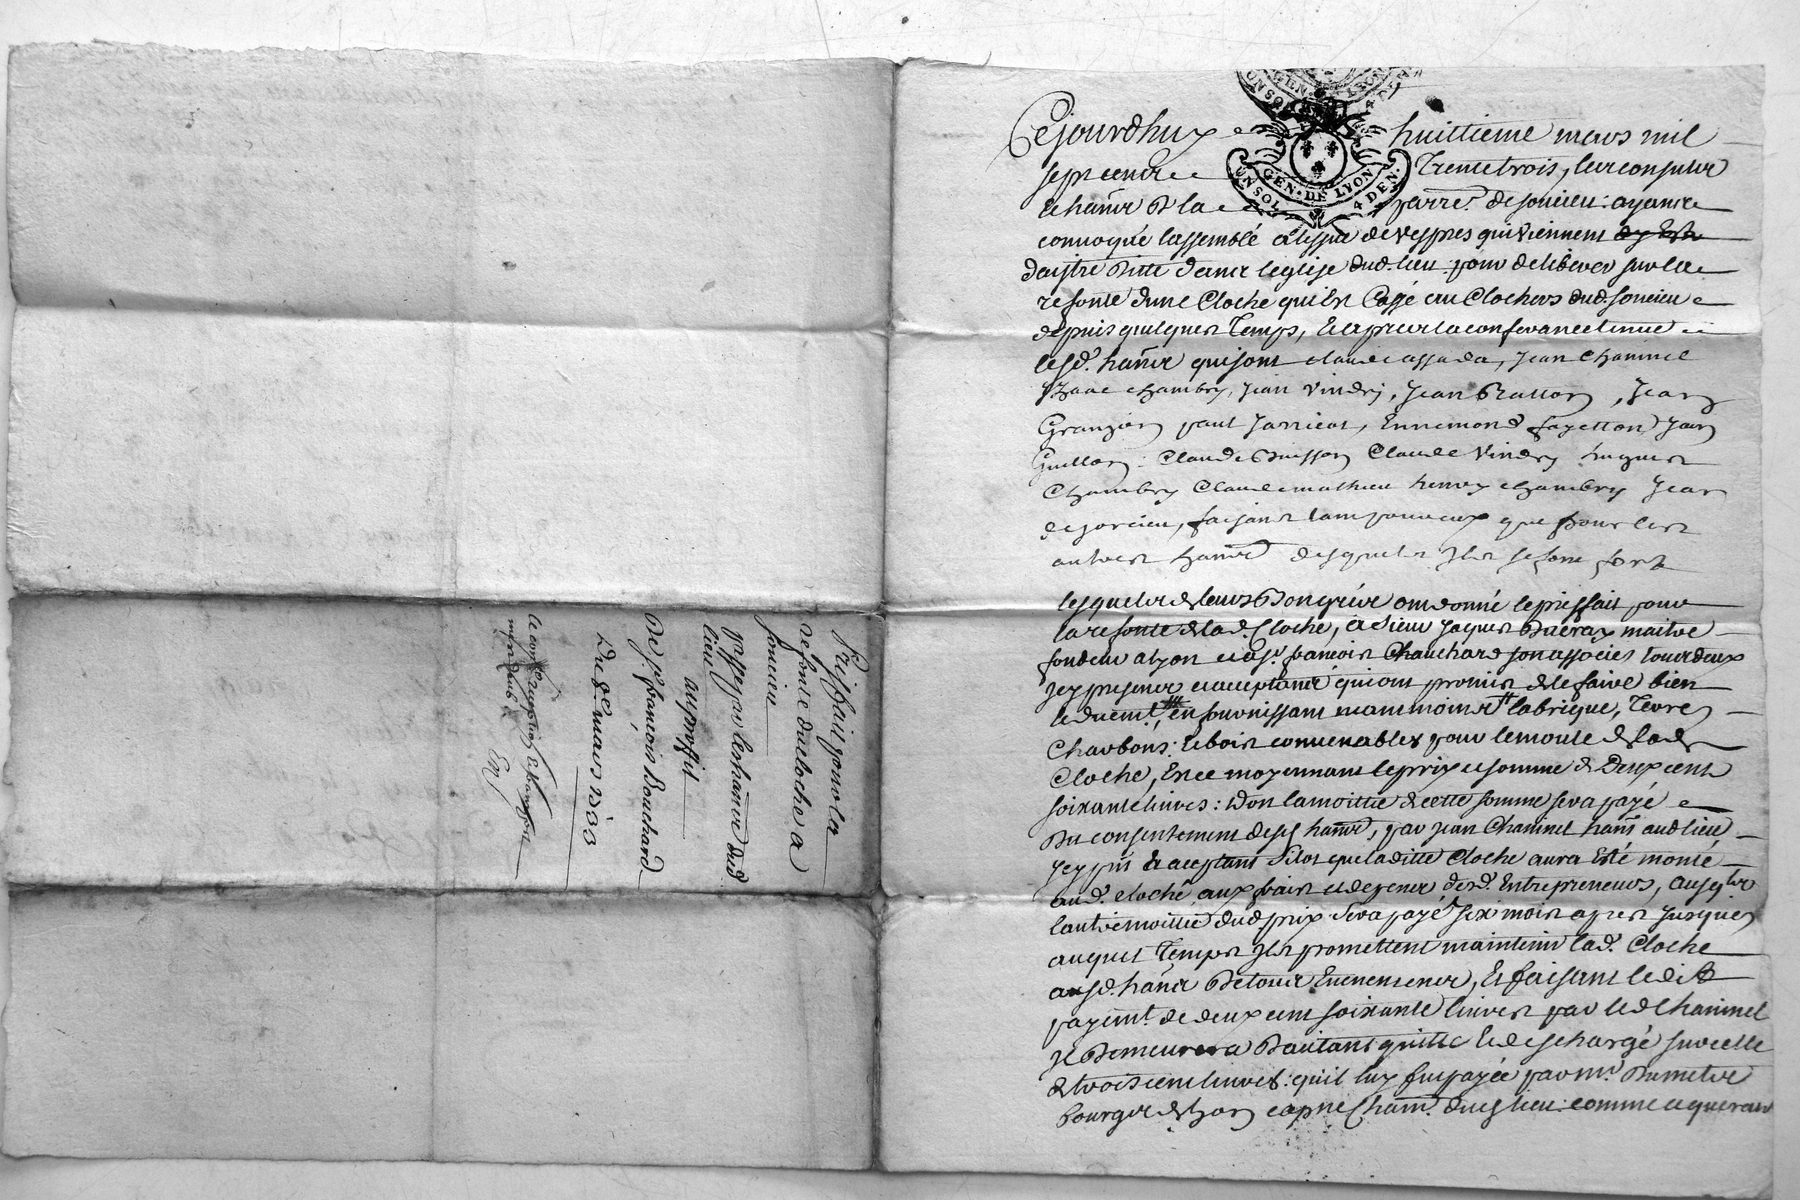 Cejourdhuy huittieme mars mil
sept cent Trente trois, les consulz
& hãns de la parr.e de soucieu : ayant
convoqué lassemblé a lissue de vespres qui viennent
destre ditte dans leglise dud. lieu pour deliberer sur la
refonte dune Cloche qui est Cassé au Clochers dud. soucieu
depuis quelques Temps, Et apres la conferance tenue
lesd. hãns qui sont claude cassada, jean Chaninel
jean vindry, jean Ratton, jean
Granjon paul jarricot, Ennemond fayetton jean
Guillon : Claude Buisson Claude Vindry hugues
Chambry Claude mathieu henry chambry jean
faisant tant pour eux que pour les
autres hãns desquels Ils se font fort
lesquels de leurs Bon gré ont donné le prisfait pour
la refonte de lad. Cloche, a sieur jaques Ducray maitre
fondeur a lyon et a s.r francois Chauchard son associés tout deux
icy present et acceptant qui ont promis de le faire bien
et duem.t, en fournissant neanmoins labrique, Terre
Charbons : & bois convenables pour le moule de lad.
Cloche, Et ce moyennant le prix et somme de Deux cent
soixante livres : Dont la moittie de cette somme sera payé
Du consentement desd. hãns, par jean Chaninel hãnt aud. lieu
icy pñt & acceptant sitot que laditte Cloche aura Esté monté
aud. cloché aux frais et despens desd. Entrepreneurs,
lautre moittie dud. prix sera payé six mois apres jusques
auquel Temps Ils promettent maintenir lad. Cloche
ausd. hãns De tous Evenements, Et faisant ledit
payem.t de deux cent soixante livres par led. Chaninel
Il Demeurera Dautant quitte & deschargé sur celle
de trois cent livres : quil luy fut payée par m.r Dumetre
bourgs de lyon dud. lieu : comme
GEN. DE LYON
4 DEN.
Prisfait pour la
refonte du cloche a
soucieu
passé par les hãns dud.
lieu
au proffit
De s.r francois Bouchard
Du 8.e mars 1733